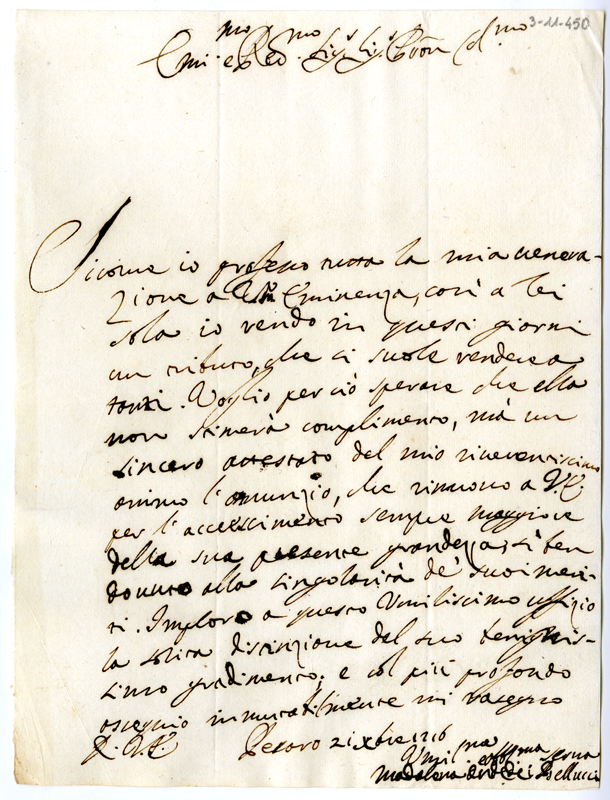 3-11-450
Emi.mo e Red.mo Sig.r Sig.r Pron Col.mo
Sicome io professo tutta la mia venera-
zione a V.ra Eminenza, così a lei
sola io rendo in questi giorni
un tributo, che si suole rendere a
tanti. Voglio perciò sperare che ella
non stimerà complimento, mà un
sincero attestato del mio riverentissimo
animo l'annunzio, che rinuovo a V.E.
per l'accrescimento sempre maggiore
della sua presente grandezza sì ben
dovuto alla singolarità de' suoi meri-
ti. Imploro a questo Umilissimo uffizio
la solita distinzione del suo benignis-
simo gradimento, e col più profondo
ossequio immutabilmente mi rassegno
D. V.E. Pesaro 21 Xbre 1716
Umil.ma serva
Madalena Bellucci